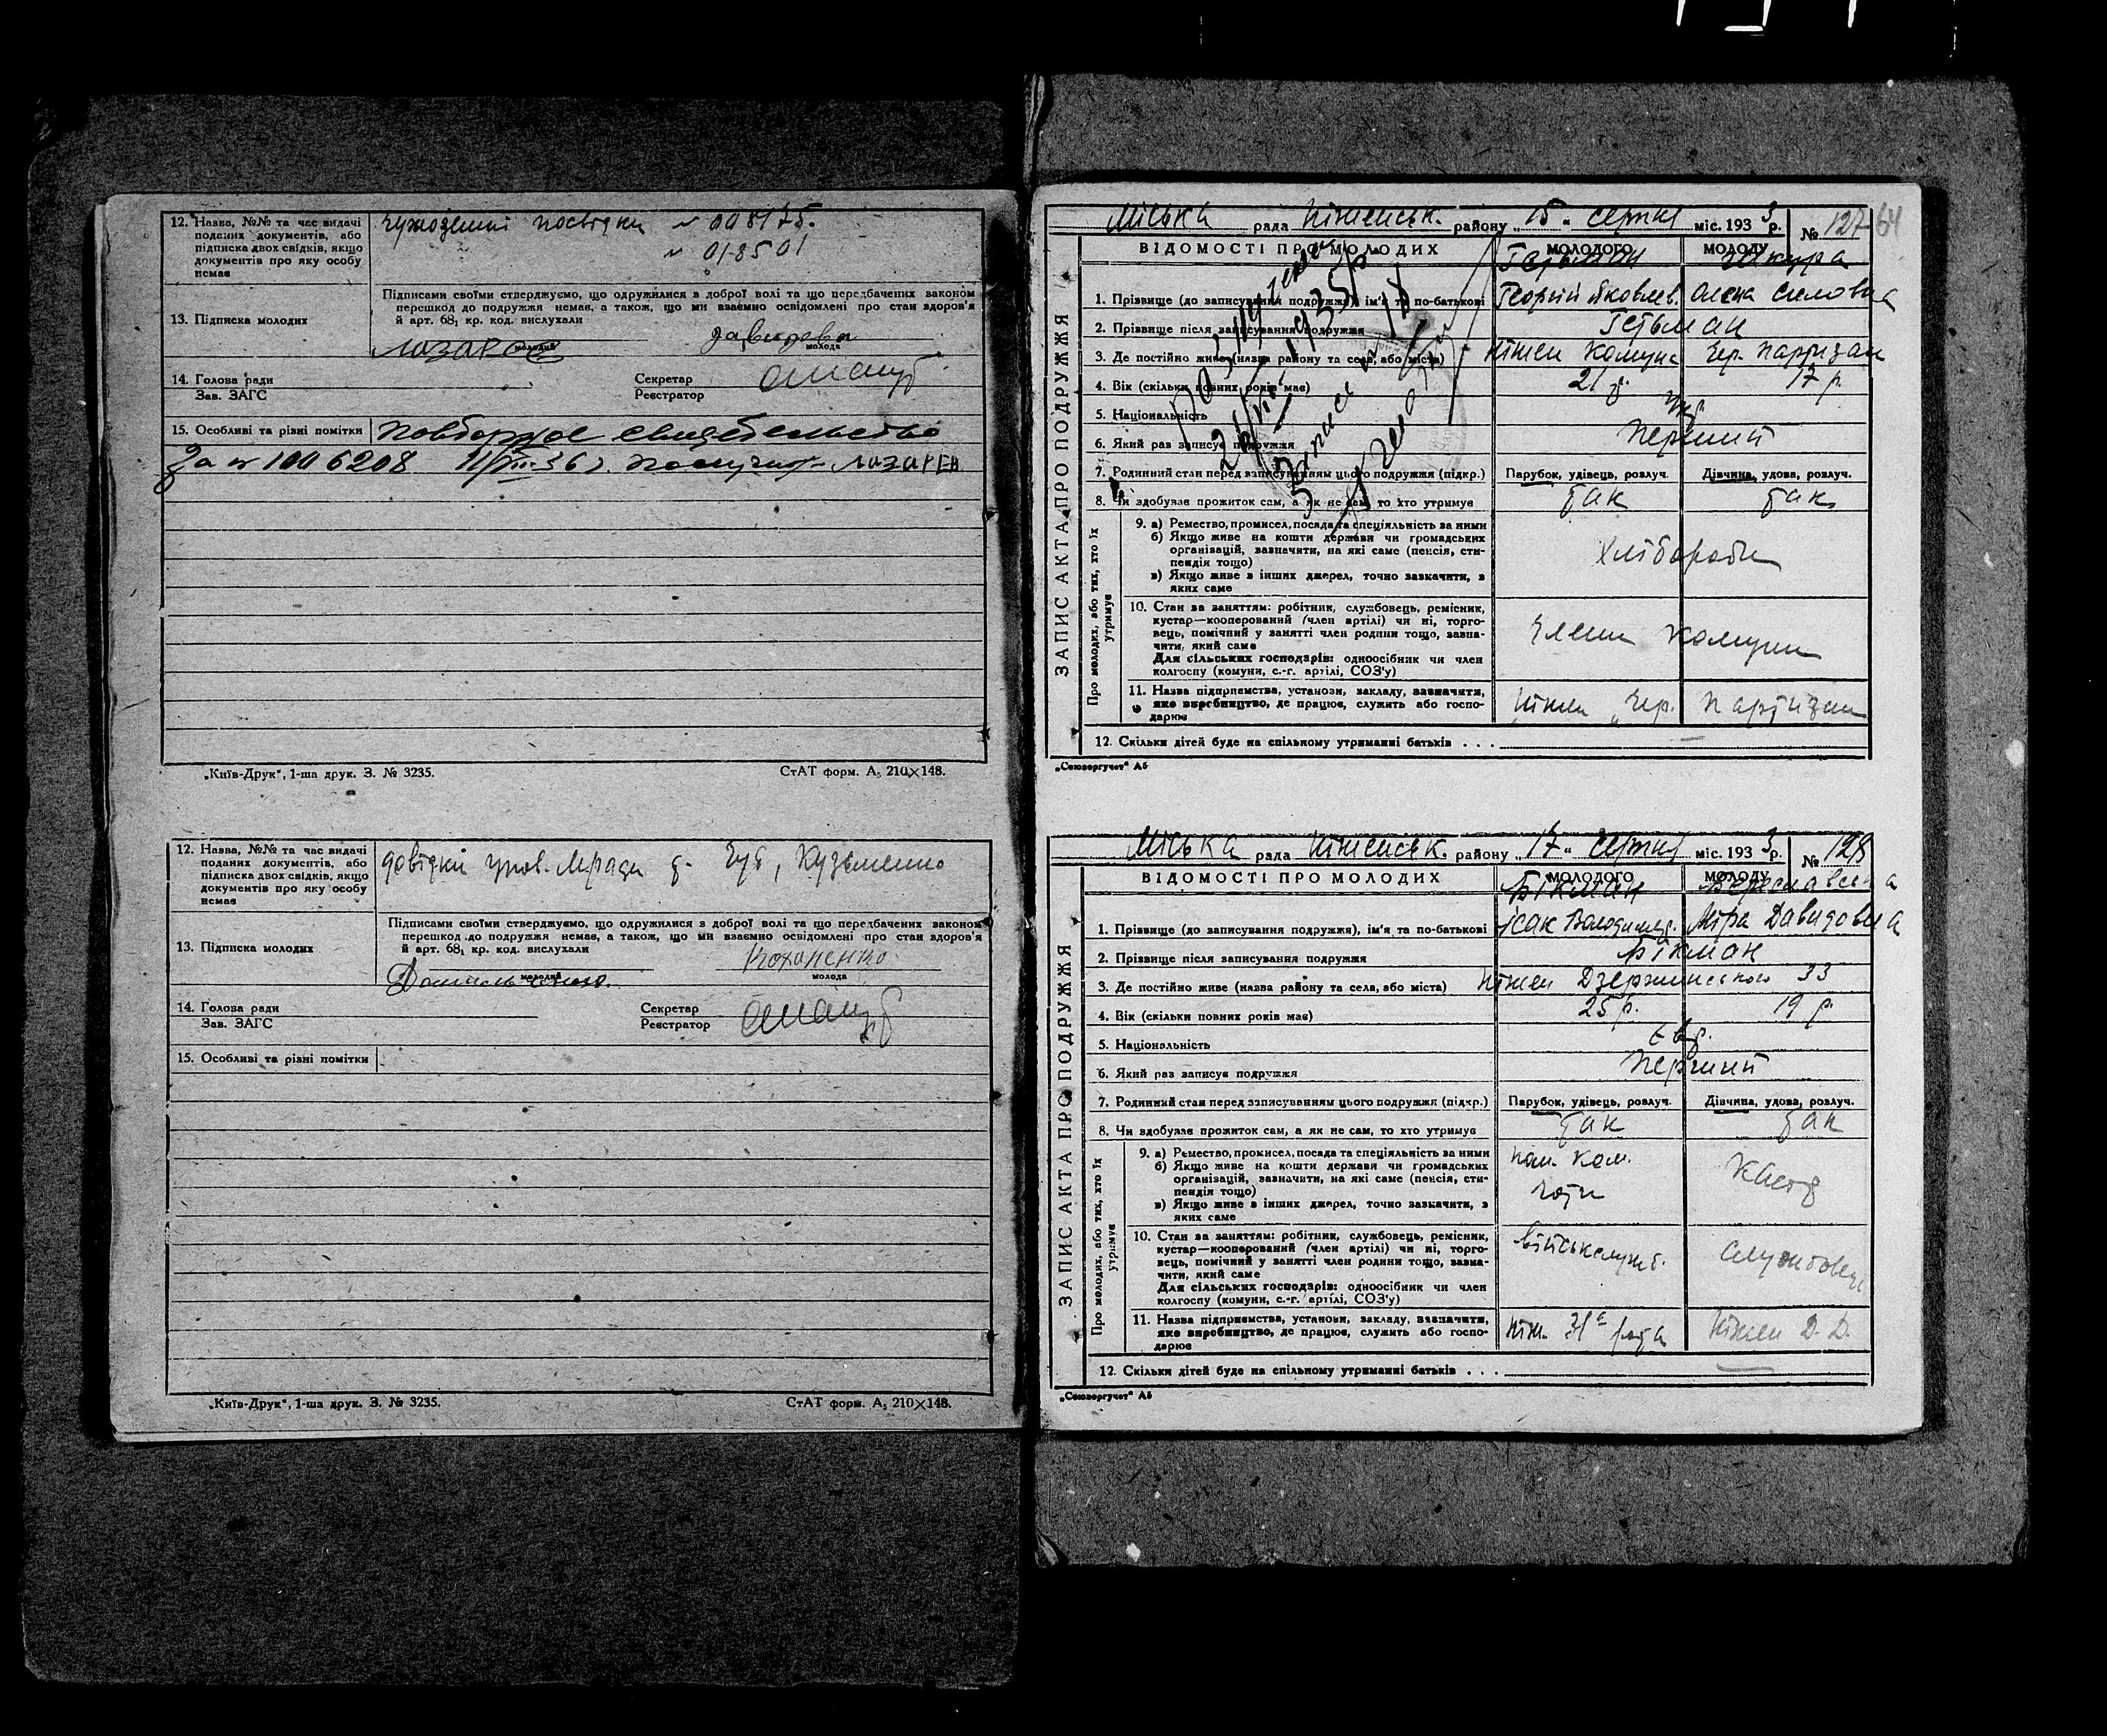 12. Назва, №№ та час видачі
поданих документів, або
підписка двох свідків, якщо
документів про яку особу
немає
посвідки № 008175.
№ 01-8501
Підписами своїми стверджуємо, що одружилися з доброї волі та що передбачених законом
перешкод до подружжя немає, а також, що ми взаємно освідомлені про стан здоров'я
й арт. 68₁ кр. код. вислухали
13. Підписка молодих
Лазарев
молодий
молода
14. Голова ради
Зав. ЗАГС
Секретар
Реєстратор
15. Особливі та різні помітки
Повторное свидетельство
За № 1006208 11/III-36 г. получил Лазарев
„Київ-Друк“, 1-ша друк. З. № 3235.
СтАТ форм. А₅ 210×148.
12. Назва, №№ та час видачі
поданих документів, або
підписка двох свідків, якщо
документів про яку особу
немає
довідки Кузьменно
Підписами своїми стверджуємо, що одружилися з доброї волі та що передбачених законом
перешкод до подружжя немає, а також, що ми взаємно освідомлені про стан здоров'я
й арт. 68₁ кр. код. вислухали
13. Підписка молодих
Коханенко
молодий
молода
14. Голова ради
Зав. ЗАГС
Секретар
Реєстратор
15. Особливі та різні помітки
„Київ-Друк“, 1-ша друк. З. № 3235.
СтАТ форм. А₅ 210×148.
Міська рада Ніженськ. району „15“ серпня міс. 1933 р. № 127 64
ЗАПИС АКТА ПРО ПОДРУЖЖЯ
ВІДОМОСТІ ПРО МОЛОДИХ
МОЛОДОГО
МОЛОДУ
Гетьман
Шкура
1. Прізвище (до записування подружжя), ім'я та по-батькові
Георгій Яковлев. Олена Силовна
2. Прізвище після записування подружжя
Гетьман
3. Де постійно живе (назва району та села, або міста)
Ніжен Комуна Чер. Партизан
4. Вік (скільки повних років має)
21 р. 17 р.
5. Національність
Укр.
6. Який раз записує подружжя
Перший
7. Родинний стан перед записуванням цього подружжя (підкр.)
Парубок, удівець, розлуч.
Дівчина, удова, розлуч.
8. Чи здобуває прожиток сам, а як не сам, то хто утримує
так так
Про молодих, або тих, хто їх утримує
9. а) Ремество, промисел, посада та спеціяльність за ними
б) Якщо живе на кошти держави чи громадських
організацій, зазначити, на які саме (пенсія, сти-
пендія тощо)
в) Якщо живе з інших джерел, точно зазначити, з
яких саме
Хлібороби
10. Стан за заняттям: робітник, службовець, ремісник,
кустар—кооперований (член артілі) чи ні, торго-
вець, помічний у занятті член родини тощо, зазна-
чити, який саме
Для сільських господарів: одноосібник чи член
колгоспу (комуни, с.-г. артілі, СОЗ'у)
Члени комуни
11. Назва підприємства, установи, закладу, зазначити,
яке виробництво, де працює, служить або госпо-
дарює
Ніжен „Чер. Партизан
12. Скільки дітей буде на спільному утриманні батьків . . .
„Союзоргучет“ А5
Міська рада Ніженськ. району „17“ серпня міс. 1933 р. № 128
ЗАПИС АКТА ПРО ПОДРУЖЖЯ
ВІДОМОСТІ ПРО МОЛОДИХ
МОЛОДОГО
МОЛОДУ
Бікман
1. Прізвище (до записування подружжя), ім'я та по-батькові
Ісак Володимир. Міра Давидовна
2. Прізвище після записування подружжя
Бікман
3. Де постійно живе (назва району та села, або міста)
Ніжен Дзержинського 33
4. Вік (скільки повних років має)
25 р. 19 р.
5. Національність
Євр.
6. Який раз записує подружжя
Перший
7. Родинний стан перед записуванням цього подружжя (підкр.)
Парубок, удівець, розлуч.
Дівчина, удова, розлуч.
8. Чи здобуває прожиток сам, а як не сам, то хто утримує
так так
Про молодих, або тих, хто їх утримує
9. а) Ремество, промисел, посада та спеціяльність за ними
б) Якщо живе на кошти держави чи громадських
організацій, зазначити, на які саме (пенсія, сти-
пендія тощо)
в) Якщо живе з інших джерел, точно зазначити, з
яких саме
пом. ком.
роти
10. Стан за заняттям: робітник, службовець, ремісник,
кустар—кооперований (член артілі) чи ні, торго-
вець, помічний у занятті член родини тощо, зазна-
чити, який саме
Для сільських господарів: одноосібник чи член
колгоспу (комуни, с.-г. артілі, СОЗ'у)
військслужб. службовець
11. Назва підприємства, установи, закладу, зазначити,
яке виробництво, де працює, служить або госпо-
дарює
Ніж. 31ᵃ рота Ніжен Д. Д.
12. Скільки дітей буде на спільному утриманні батьків . . .
„Союзоргучет“ А5